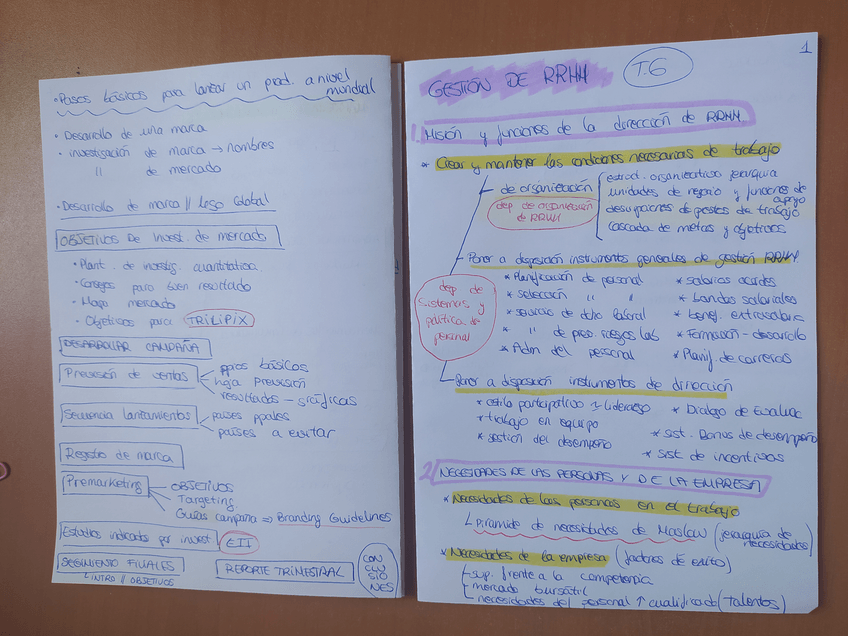 • Pasos básicos para lanzar un prod. a nivel
mundial
• Desarrollo de una marca
• investigación de marca → nombres
" de mercado
• Desarrollo de marca // Logo Global
OBJETIVOS DE invest. de mercado
• Plant. de investig. cuantitativa.
• Consejos para buen resultado
• Mapa mercado
• Objetivos para TRILIPIX
DESARROLLAR CAMPAÑA
Previsión de ventas
ppios básicos
hoja previsión
resultados - gráficas
Secuencia lanzamientos
países ppales
países a evitar
Registro de marca
Premarketing
OBJETIVOS
Targeting
Guías campaña ⇒ Branding Guidelines
Estudios indicados por invest.
EII
SEGUIMIENTO FINALES
INTRO // OBJETIVOS
REPORTE TRIMESTRAL
CON
CLU
SIO
NES
1
GESTIÓN DE RRHH
T.6
1. Misión y funciones de la dirección de RRHH.
* Crear y mantener las condiciones necesarias de trabajo
- de organización
dep de organización
de RRHH
estruct. organizativo jerarquia
unidades de negocio y funciones de
apoyo
descripciones de puestos de trabajo
cascada de metas y objetivos
- Poner a disposición instrumentos generales de gestión RRHH
dep de
sistemas y
política de
personal
* Planificación de personal
* selección " "
* servicio de dcho laboral
* " de prev. riesgos lab
* Adm del personal
* salarios acordes
* bandas salariales
* benef. extrasalar.
* Formación - desarrollo
* Planif. de carreras
Poner a disposición instrumentos de dirección
* estilo participativo y liderazgo
* trabajo en equipo
* gestión del desempeño
* Dialogo de Evaluac
* sist. Bonus de desempeño
* Sist de incentivos
2. NECESIDADES DE LAS PERSONAS Y DE LA EMPRESA
* Necesidades de las personas en el trabajo
Pirámide de necesidades de Maslow (jerarquía de
necesidades)
* Necesidades de la empresa (factores de éxito)
- sup. frente a la competencia
- mercado bursátil
- necesidades del personal ↑ cualificado (Talentos)